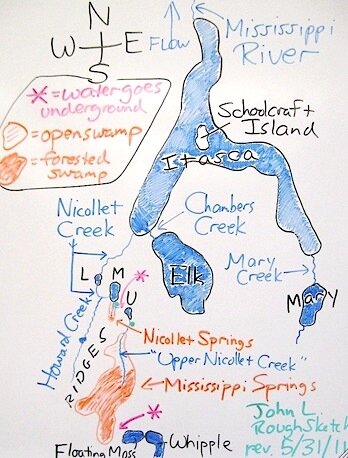 N
W E
S
FLOW
Mississippi
River
* = water goes
underground
= open swamp
= forested
swamp
Schoolcraft
Island
Itasca
Nicollet
Creek
Chambers
Creek
Elk
Mary
Creek
Mary
L
M
U
*
Howard Creek
RIDGES
Nicollet Springs
"Upper Nicollet Creek"
Mississippi Springs
*
Floating Moss
Whipple
John L
Rough Sketch
rev. 5/31/11